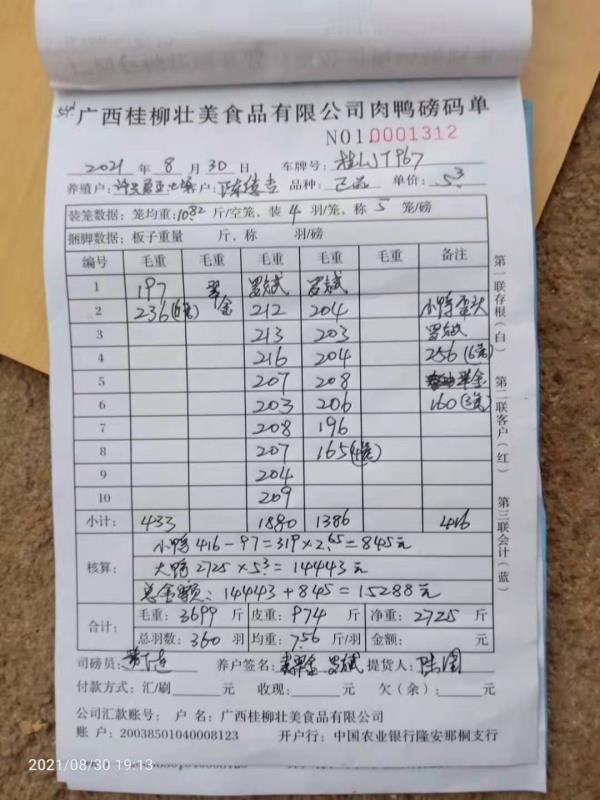 广西桂柳壮美食品有限公司肉鸭磅码单
NO10001312
2021 年 8 月 30 日 车牌号: 桂AJT967
养殖户: 客户: 品种: 单价: 5.3
装笼数据: 笼均重: 10.82 斤/空笼, 装 4 羽/笼, 称 5 笼/磅
捆脚数据: 板子重量 斤, 称 羽/磅
编号 毛重 毛重 毛重 毛重 毛重 备注
1 197 翠 罗斌 罗斌
2 236(6笼) 金 212 204 小鸭歪头
3 213 203 罗斌
4 216 204 256(6笼)
5 207 208 翠金
6 203 206 160(3笼)
7 208 196
8 207 165(4笼)
9 204
10 209
小计: 433 1880 1386 416
核算: 小鸭416-97=319×2.65=845元
大鸭2725×5.3=14443元
总金额: 14443+845=15288元
合计: 毛重: 3699 斤 皮重: 974 斤 净重: 2725 斤
总羽数: 360 羽 均重: 7.56 斤/羽 金额: 元
司磅员: 养户签名: 翠金 罗斌 提货人:
付款方式: 汇/刷 元 收现: 元 欠(余): 元
公司汇款账号: 户 名: 广西桂柳壮美食品有限公司
账 户: 20038501040008123 开户行: 中国农业银行隆安那桐支行
第一联存根(白) 第二联客户(红) 第三联会计(蓝)
2021/08/30 19:13